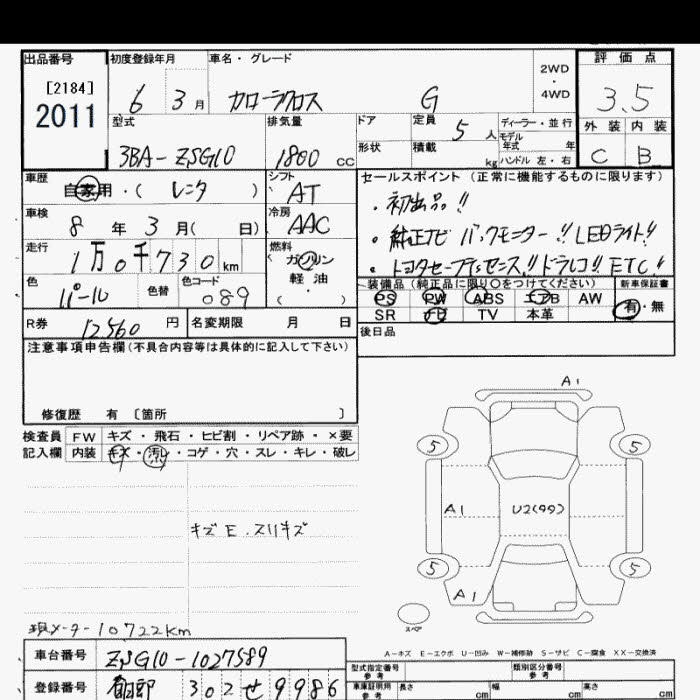 出品番号 初度登録年月 車名・グレード 2WD・4WD 評価点
[2184]
2011
6 3月 カローラクロス G 3.5
型式 排気量 ドア 定員 5人 ディーラー・並行 外装 内装
3BA-ZSG10 1800cc 形状 積載 kg モデル年式 年 ハンドル 左・右 C B
車歴 自家用・( レンタ ) シフト AT セールスポイント(正常に機能するものに限ります)
・初出品!!
車検 8年3月( 日) 冷房 AAC
・純正ナビ バックモニター!! LEDライト!!
走行 1万0千730km 燃料 ガソリン・軽油( )
・トヨタセーフティセンス!! ドラレコ!! ETC!!
色 パール 色替 色コード 089
装備品(純正品に限り○をつけてください) 新車保証書
PS PW ABS エアB AW 有・無
SR TV 本革
R券 12560円 名変期限 月 日
後日品
注意事項申告欄(不具合内容等は具体的に記入して下さい)
修復歴 有 〔箇所 〕
検査員 FW キズ・飛石・ヒビ割・リペア跡・×要
記入欄 内装 キズ・汚れ・コゲ・穴・スレ・キレ・破レ
A1
5 5
A1 U2(99)
キズE.スリキズ
5 5
A1
スペア
現メーター10722km
A-キズ E-エクボ U-凹み W-補修跡 S-サビ C-腐食 XX-交換済
車台番号 ZSG10-1027589
型式指定番号 参考 類別区分番号 参考
登録番号 302 せ 9986
車庫証明用 参考 長さ cm 幅 cm 高さ cm